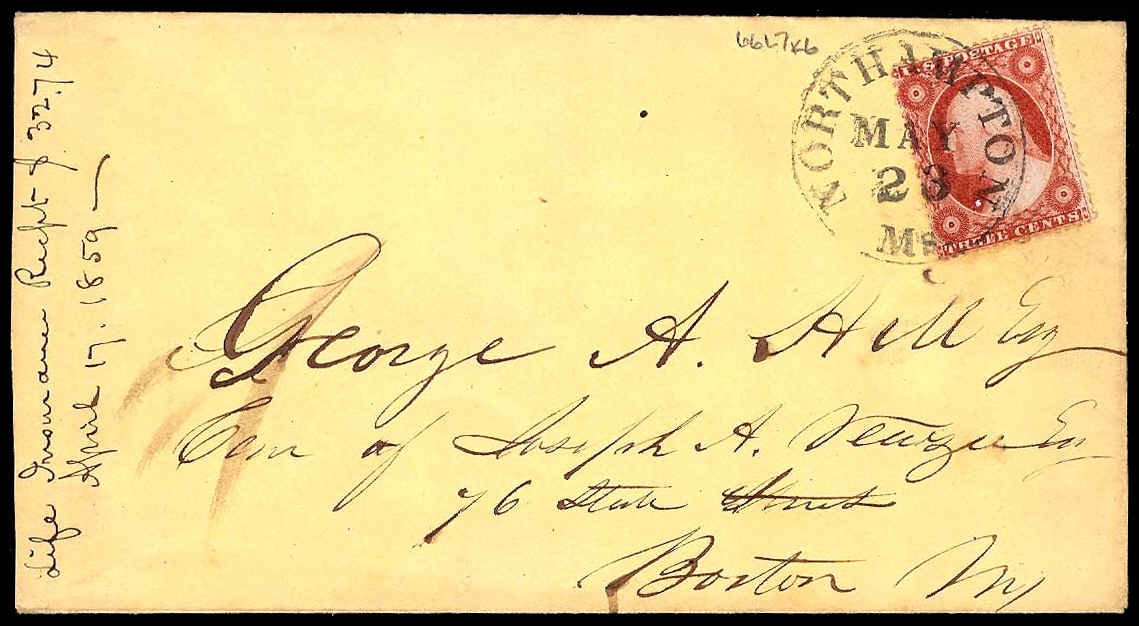 Life Insurance Recpt $32.74
April 17. 1859
NORTHAMPTON
MAY
23
Ms
U.S. POSTAGE
THREE CENTS
George A. Hill Esq
of Joseph A. Esq
76 State Street
Boston Ms